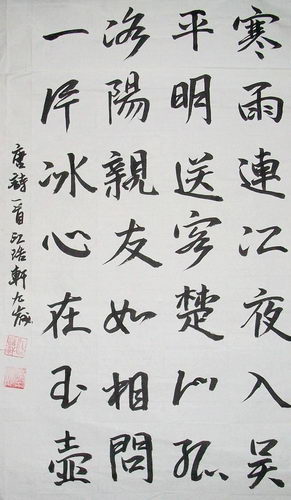 寒雨連江夜入吴
平明送客楚山孤
洛陽親友如相問
一片冰心在玉壺
唐詩一首江浩軒九歲